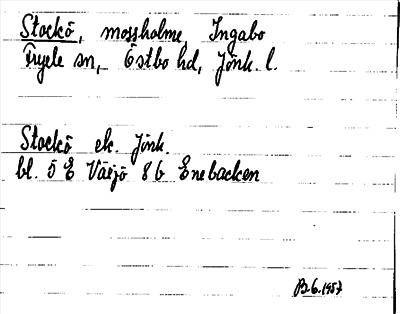 Stockö, mossholme, Ingabo
Fryele sn, Östbo hd, Jönk. l.
Stockö ek. Jönk.
bl. 5 E Växjö 8 b Enebacken
B.G. 1957